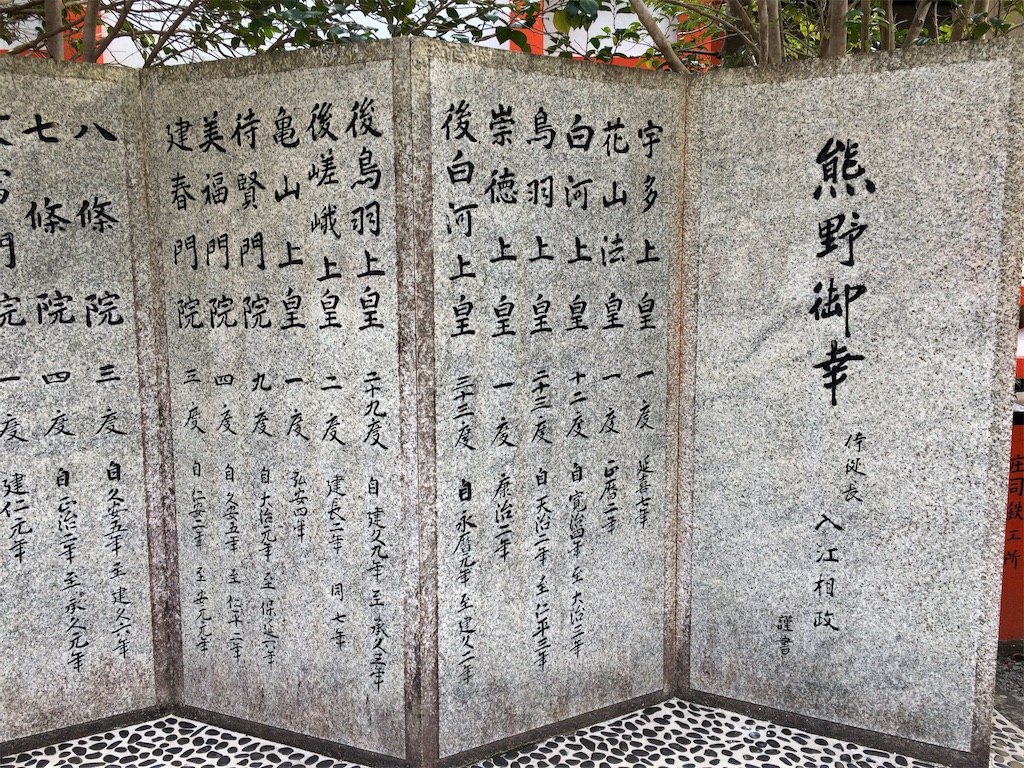 熊野御幸
侍従長 入江相政
謹書
宇多上皇 一度 延喜七年
花山法皇 一度 正暦二年
白河上皇 十二度 自寛治四年至大治三年
鳥羽上皇 二十三度 自天治二年至仁平三年
崇徳上皇 一度 康治二年
後白河上皇 三十三度 自永暦元年至建久二年
後鳥羽上皇 二十九度 自建久九年至承久三年
後嵯峨上皇 二度 建長二年 同七年
亀山上皇 一度 弘安四年
待賢門院 九度 自大治元年至保延六年
美福門院 四度 自久安五年至仁平二年
建春門院 三度 自仁安二年至安元元年
八條院 三度 自久安五年至建久六年
七條院 四度 自正治二年至承久元年
門院 一度 建仁元年
庄司鉄工所